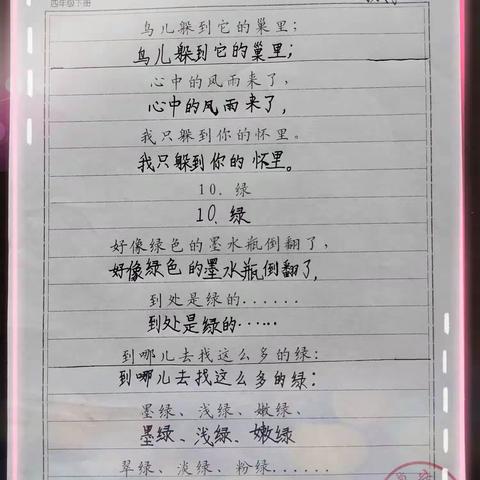 四年级下册
鸟儿躲到它的巢里；
鸟儿躲到它的巢里；
心中的风雨来了，
心中的风雨来了，
我只躲到你的怀里。
我只躲到你的怀里。
10. 绿
10. 绿
好像绿色的墨水瓶倒翻了，
好像绿色的墨水瓶倒翻了，
到处是绿的......
到处是绿的......
到哪儿去找这么多的绿：
到哪儿去找这么多的绿：
墨绿、浅绿、嫩绿、
墨绿、浅绿、嫩绿
翠绿、淡绿、粉绿......